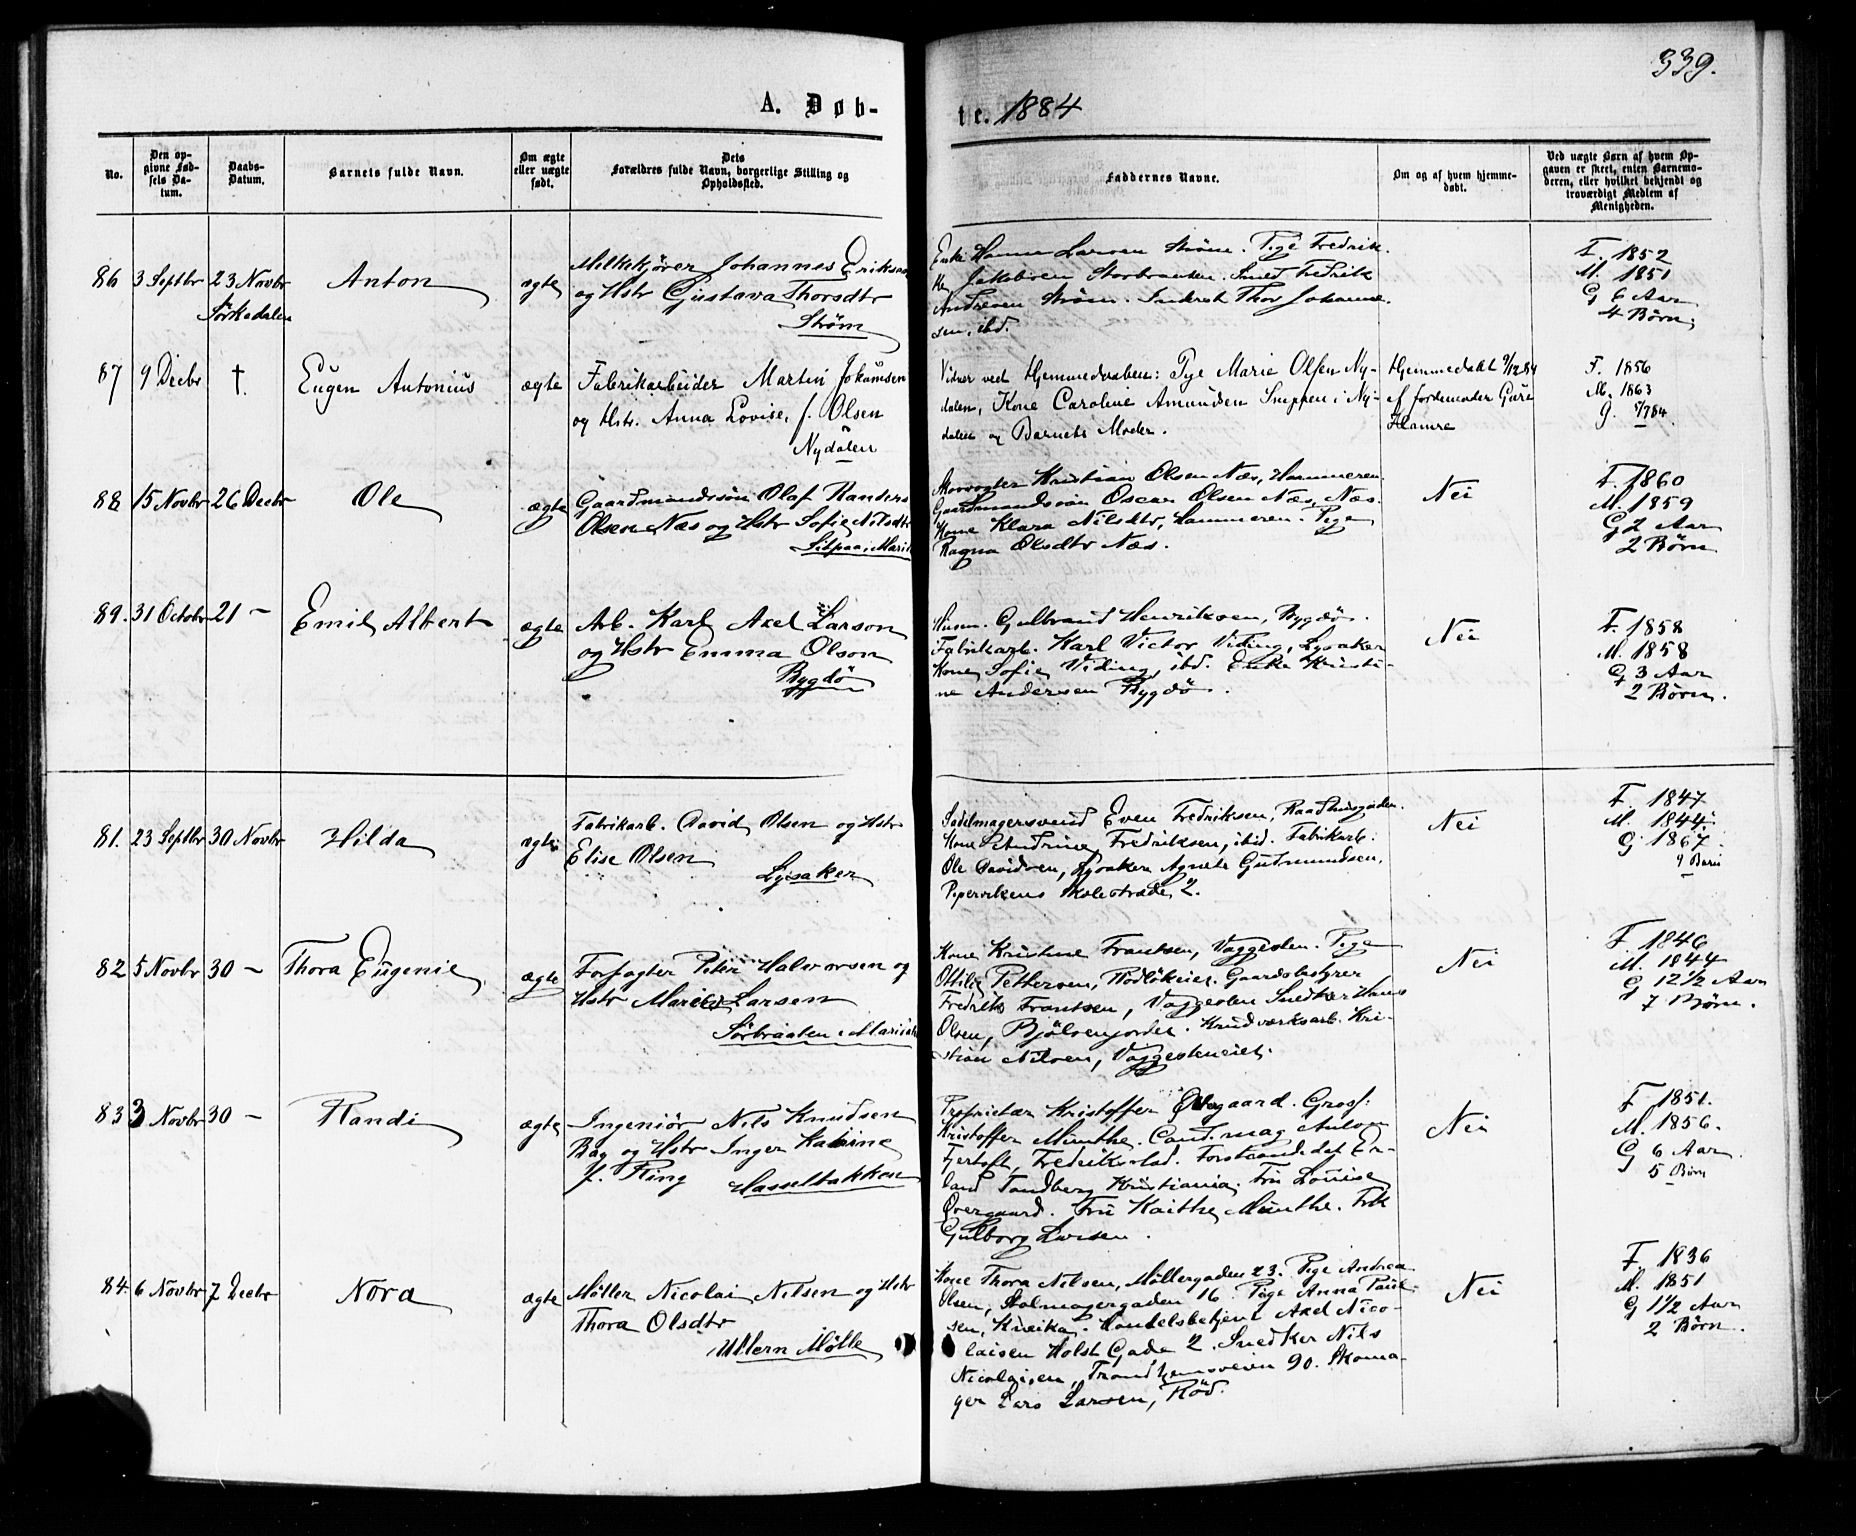 339.
A. Døb-
te. 1884
No.
Den op-
givne Fød-
sels Da-
tum.
Daabs-
Datum.
Barnets fulde Navn.
Om ægte
eller uægte
født.
Dets
Forældres fulde Navn, borgerlige Stilling og
Opholdssted.
Faddernes Navne.
Om og af hvem hjemme-
døbt.
Ved uægte Børn af hvem Op-
gaven er skeet, enten Barnemo-
deren, eller hvilket bekjendt og
troværdigt Medlem af
Menigheden.
86 3 Septbr 23 Novbr Anton ægte
Sørkedalen
Melkkjører Johannes Eriksen
og Hstr Gustava Thorsdtr
Strøm
Enke Hanna Larsen Strøm. Pige Fredrik-
ke Jakobsen Storbraaten. Smed Fredrik
Andresen Strøm. Inderst Thor Johanne-
sen, ibd.
F. 1852
M. 1851
G 6 Aar
4 Børn
87 9 Decbr † Eugen Antonius ægte
Fabrikarbeider Martin Johansen
og Hstr. Anna Lovise, f. Olsen
Nydalen
Vidner ved Hjemmedaaben: Pige Marie Olsen Ny-
dalen, Kone Caroline Amundsen Snippen i Ny-
dalen og Barnets Moder.
Hjemmedøbt 9/12 84
af Jordemoder Gure
Hamre
F. 1856
M. 1863
G. 7/84
88 15 Novbr 26 Decbr Ole ægte
Gaardmandssøn Olaf Randers
Olsen Næs og Hstr Sofie Nilsdtr
Kristian Olsen Næs, Hammeren
Gaardmandssøn Oscar Olsen Næs, Næs.
Kone Klara Nilsdtr, Hammeren. Pige
Ragna Olsdtr Næs.
Nei
F. 1860
M. 1859
G 2 Aar
2 Børn
89. 31 Octobr 21 — Emil Albert ægte
Arb. Karl Axel Larson
og Hstr Emma Olson
Bygdø
Husm. Gulbrand Henriksen, Bygdø.
Fabrikarb. Karl Victor Viding, Lysaker
Kone Sofie Viding, ibd. Enke Kristi-
ne Andersen Bygdø.
Nei
F. 1858
M. 1858
G 3 Aar
2 Børn.
81. 23 Septbr 30 Novbr Hilda ægte
Fabrikarb. David Olsen og Hstr
Elise Olsen
Lysaker
Sadelmagersvend Even Fredriksen, Raadhusgaden.
Kone Andrine Fredriksen, ibid. Fabrikarb.
Ole Davidsen, Lysaker. Agnete Gutmundsen,
Pipervikens Skolestræde 2.
Nei
F. 1847
M. 1844
G 1867
9 Børn
82 5 Novbr 30 — Thora Eugenie ægte
Forpagter Peter Halvorsen og
Hstr Marie Larsen
Sørbraaten i Maridalen
Kone Kristine Frantsen, Vaggesten. Pige
Ottilie Pettersen, Rødløkeiet. Gaardsbestyrer
Fredrik Frantsen, Vaggesten Snedker Hans
Olsen, Bjølsenjordet. Krudværksarb. Kri-
stian Nilsen, Vaggesteneiet.
Nei
F. 1846
M. 1844
G 12 1/2 Aar
7 Børn.
83 3 Novbr 30 — Randi ægte
Ingeniør Nils Knudsen
Bay og Hstr Inger Katrine
f. Ring Hasselbakken
Proprietær Kristoffer Øvergaard. Gross.
Kristoffer Munthe. Cand. mag Anton
Fjertoft, Fredrikstad. Er-
land Tandberg Kristiania. Fru Louise
Øvergaard. Fru Kaithe Munthe. Frk
Gulborg Larsen.
Nei
F 1851.
M. 1856.
G 6 Aar.
5 Børn
84. 6 Novbr 7 Decbr Nora ægte
Møller Nicolai Nilsen og Hstr
Thora Olsdtr
Ullern Mølle
Kone Thora Nilsen, Møllergaden 23. Pige Andrea
Olsen, Stolmagergaden 16. Pige Anna Paul-
sen, . Handelsbetjent Axel Nico-
laisen Holst Gade 2. Snedker Nils
Nicolaisen, Trondhjemsveien 90. Skoma-
ger Lars Larsen, Rød.
Nei
F 1836
M. 1851
G 1 1/2 Aar
2 Børn.